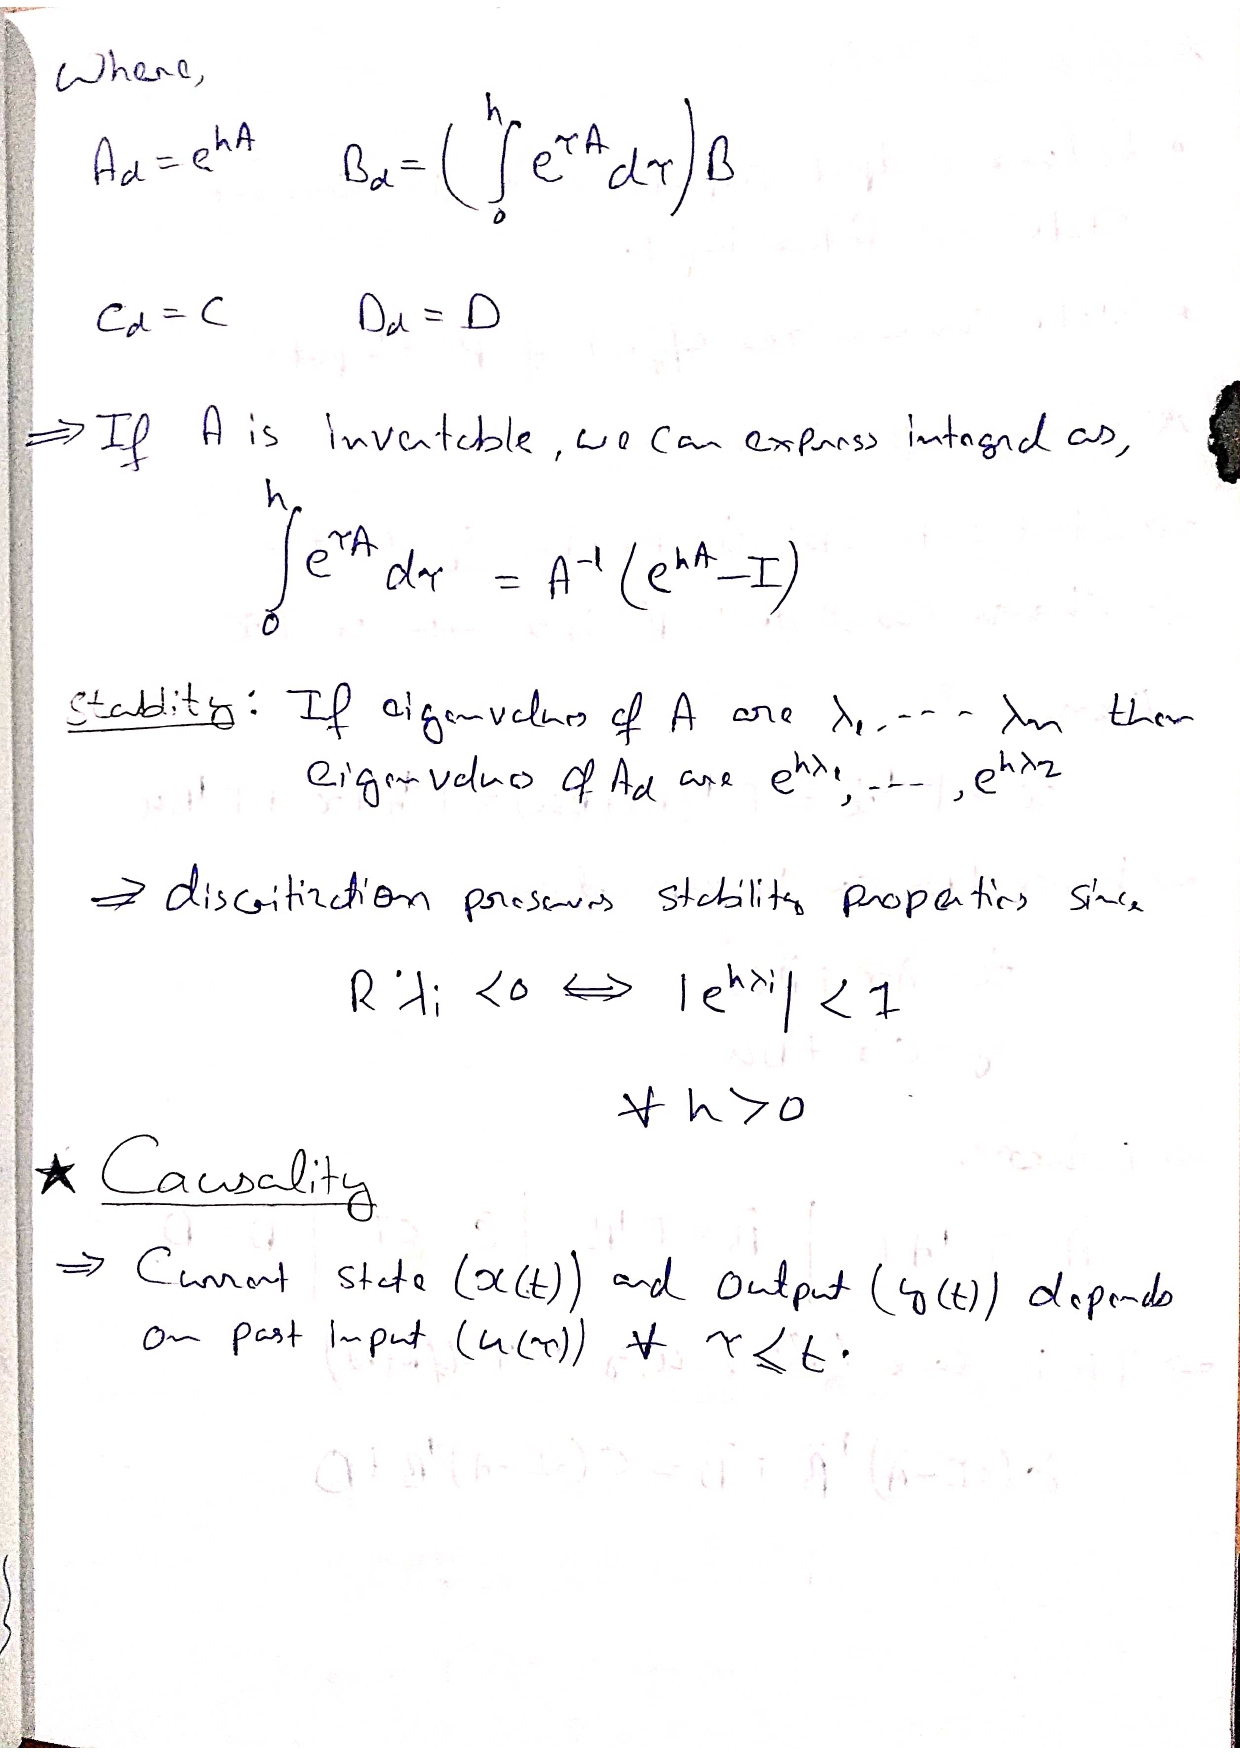 Where,
Ad = e^{hA} Bd = (∫_0^h e^{τA} dτ) B
Cd = C Dd = D
⇒ If A is invertable, we can express integral as,
∫_0^h e^{τA} dτ = A^{-1} (e^{hA} – I)
Stability: If eigenvalues of A are λ1, ---- λn then
eigenvalues of Ad are e^{hλ1}, ---, e^{hλ2}
⇒ discritization preserves stability properties since
R λi < 0 ⇔ |e^{hλi}| < 1
∀ h > 0
★ Causality
⇒ Current state (x(t)) and output (y(t)) depends
on past input (u(τ)) ∀ τ ≤ t.